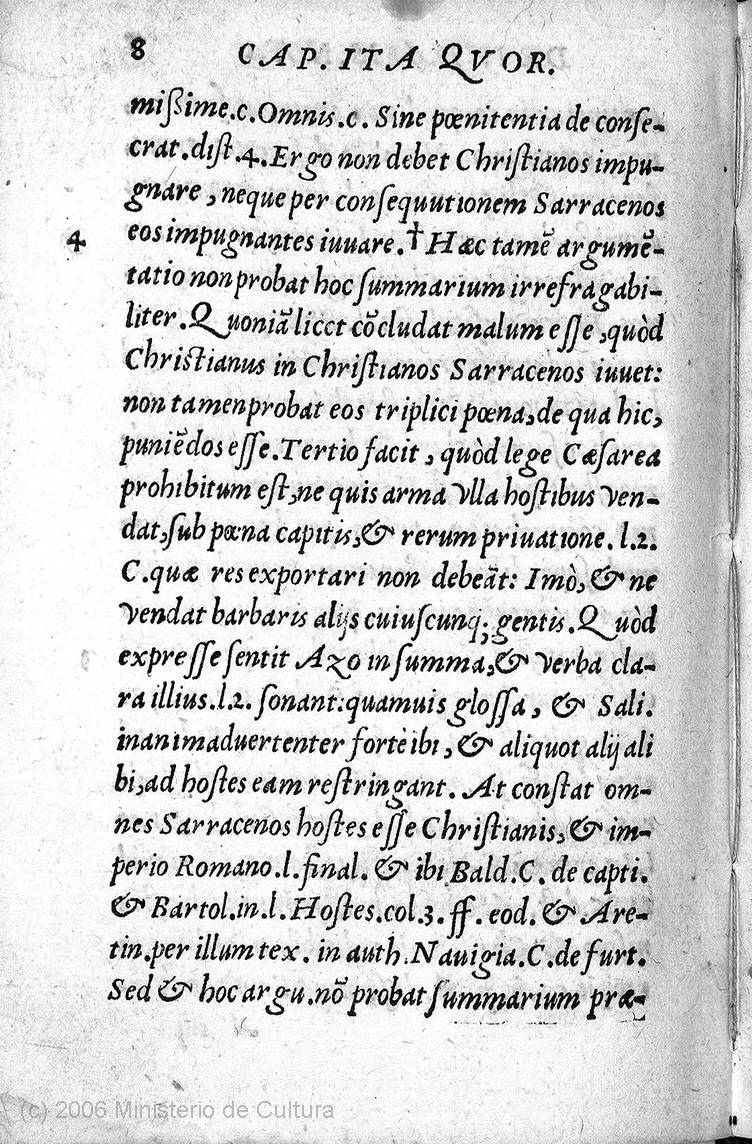 8 CAP. ITA QVOR.
mißime.c.Omnis.c. Sine pœnitentia de conſe-
crat.diſt.4.Ergo non debet Chriſtianos impu-
gnare, neque per conſequutionem Sarracenos
4 eos impugnantes iuuare.†Hæc tamē argumē-
tatio non probat hoc ſummarium irrefragabi-
liter.Quoniā licct cōcludat malum eſſe,quòd
Chriſtianus in Chriſtianos Sarracenos iuuet:
non tamen probat eos triplici pœna,de qua hic,
puniēdos eſſe.Tertio facit, quòd lege Cæſarea
prohibitum eſt,ne quis arma vlla hoſtibus ven-
dat,ſub pœna capitis,& rerum priuatione.l.2.
C.quæ res exportari non debeāt: Imò,& ne
vendat barbaris alijs cuiuſcunq; gentis.Quòd
expreſſe ſentit Azo in ſumma,& verba cla-
ra illius.l.2. ſonant:quamuis gloſſa, & Sali.
inanimaduertenter fortè ibi,& aliquot alij ali
bi,ad hoſtes eam reſtringant. At conſtat om-
nes Sarracenos hoſtes eſſe Chriſtianis,& im-
perio Romano.l.final. & ibi Bald.C. de capti.
& Bartol.in.l.Hoſtes.col.3.ff. eod. & Are-
tin.per illum tex. in auth.Nauigia.C.de furt.
Sed & hoc argu.nō probat ſummarium præ-
(c) 2006 Ministerio de Cultura